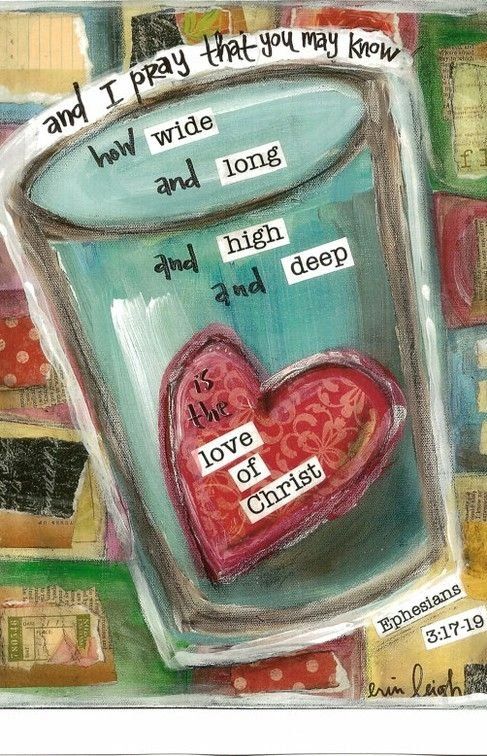 and I pray that you may know
how wide
and long
and high
and deep
is
the
love
of
Christ
Ephesians
3:17-19
erin leigh